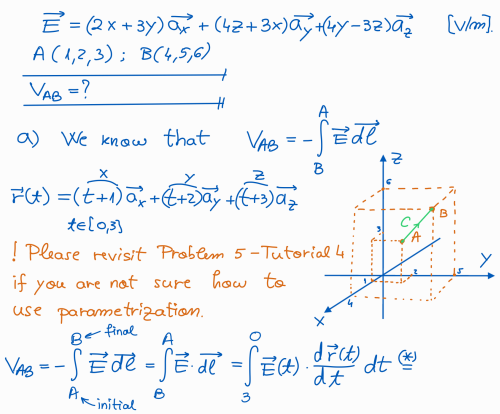 E⃗ = (2x + 3y) a⃗x + (4z + 3x) a⃗y + (4y - 3z) a⃗z [V/m].
A (1,2,3) ; B(4,5,6)
V_AB = ?
a) We know that V_AB = - ∫_B^A E⃗ dl⃗
x y z
r⃗(t) = (t+1) a⃗x + (t+2) a⃗y + (t+3) a⃗z
t∈[0,3]
! Please revisit Problem 5 - Tutorial 4
if you are not sure how to
use parametrization.
Z
6
B
C
A
3
Y
1
2
5
4
X
B ← final
V_AB = - ∫_A^B E⃗ dl⃗ = ∫_B^A E⃗ · dl⃗ = ∫_3^0 E⃗(t) · dr⃗(t)/dt dt (*)=
A ← initial